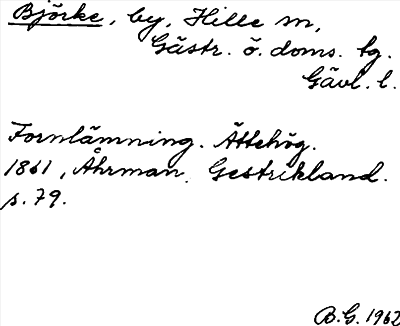 Björke, by, Hille sn,
Gästr. ö. doms. tg.
Gävl. l.
Fornlämning. Ättehög.
1861, Åhrman. Gestrikland.
s. 79.
B.G. 1962